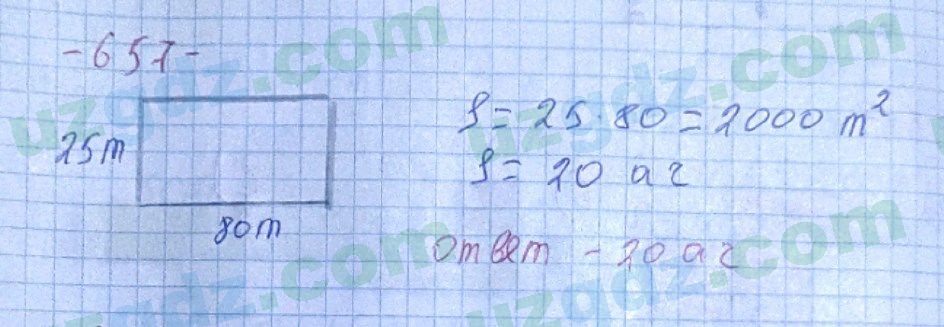 -657-
25m
80m
S = 25 · 80 = 2000 m²
S = 20 ar
Ответ - 20 ar
uzgdz.com
uzgdz.com
uzgdz.com
uzgdz.com